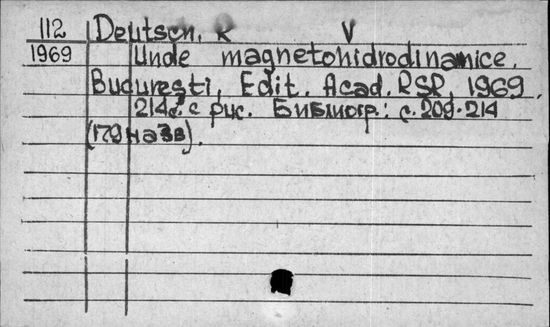 112 Deutsch. R V
1969 Unde magnetohidrodinamice.
Bucureşti, Edit. Acad. RSR, 1969.
214 с. с рис. Библиогр.: с. 209-214
(179 назв).